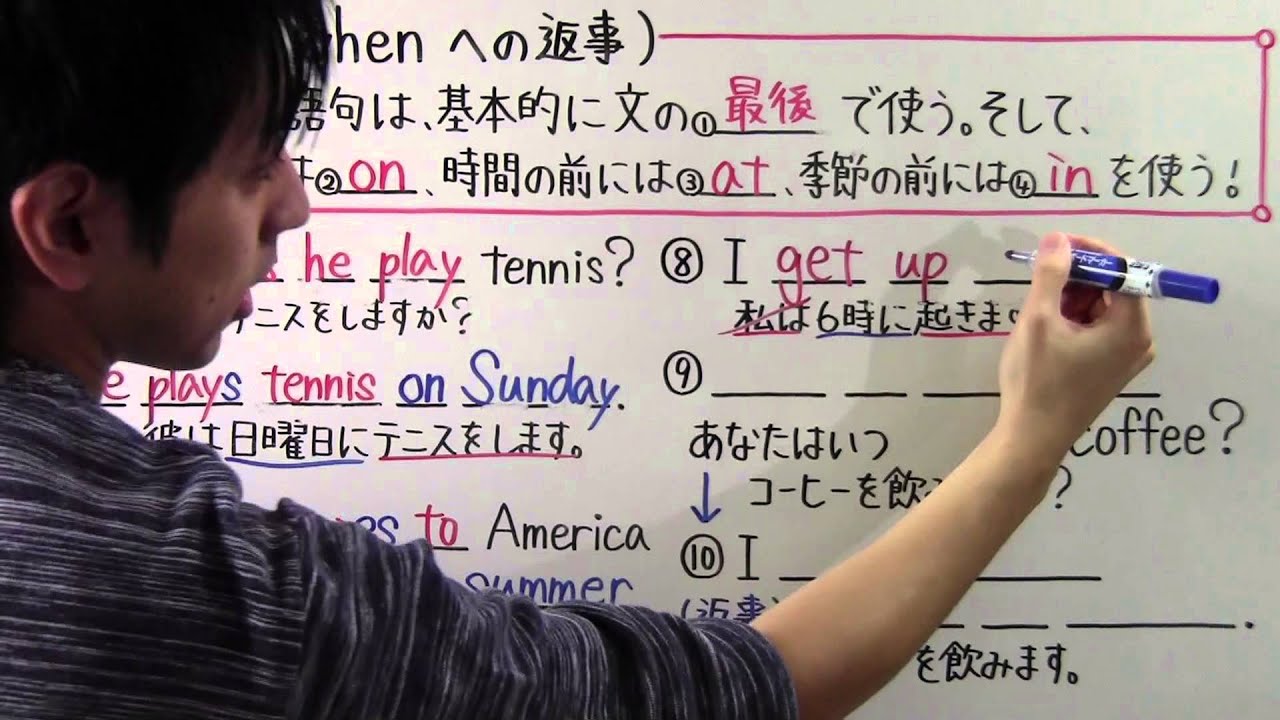 hen への返事)
語句は、基本的に文の①最後で使う。そして、
は②on、時間の前には③at、季節の前には④inを使う!
he play tennis?
テニスをしますか?
plays tennis on Sunday.
彼は日曜日にテニスをします。
to America
summer
⑧ I get up
私は6時に起きます
⑨
coffee?
あなたはいつ
コーヒーを飲み ?
↓
⑩ I
(返事)
を飲みます。